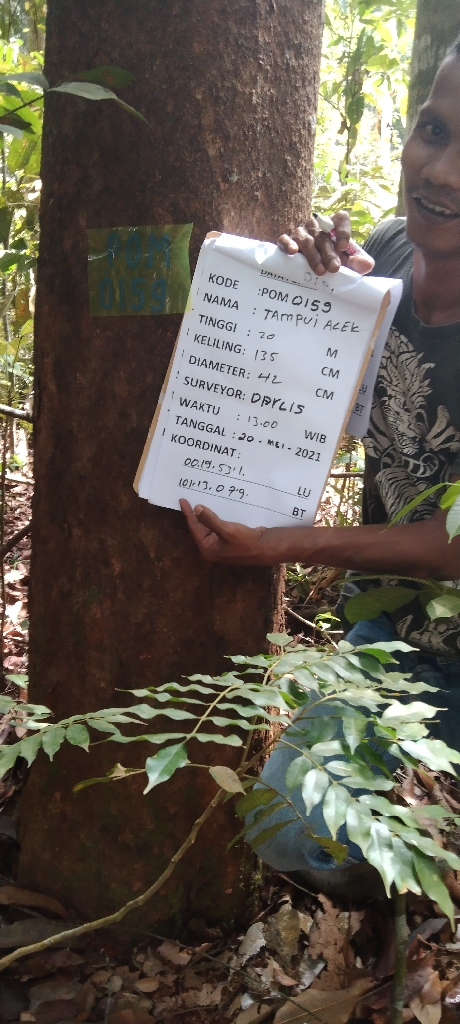 POM
0159
KODE :POM 0159
NAMA : TAMPUI ACEK
TINGGI : 20 M
KELILING: 135 CM
DIAMETER: 42 CM
SURVEYOR: DAYLIS
WAKTU : 13.00 WIB
TANGGAL : 20 - MEI - 2021
KOORDINAT:
00.19.531. LU
101.13.079. BT
LU
BT